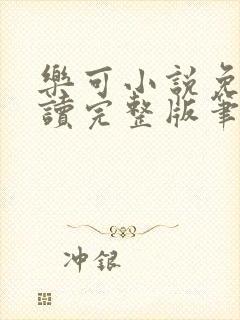 樂可小說免
讀完整版筆
冲銀